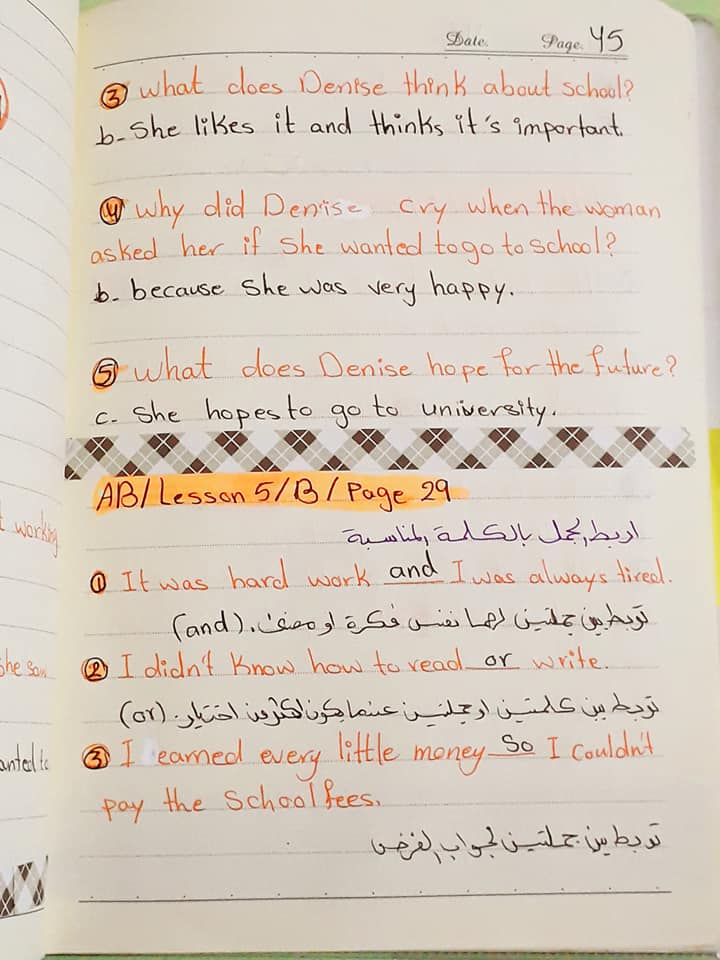 Date. Page. 45
③ What does Denise think about school?
b- She likes it and thinks it's important.
④ Why did Denise cry when the woman
asked her if she wanted to go to school?
b- because she was very happy.
⑤ What does Denise hope for the future?
c- She hopes to go to university.
AB/Lesson 5/B/Page 29
اربط الجمل بالكلمة المناسبة
① It was hard work and I was always tired.
(and) تربط بين جملتين لهما نفس فكرة او معنى.
② I didn't know how to read or write.
(or) تربط بين كلمتين او جملتين عندما يكون اكثر من اختيار.
③ I earned every little money so I couldn't
pay the school fees.
تربط بين جملتين لجواب الغرض
working
she saw
anted to